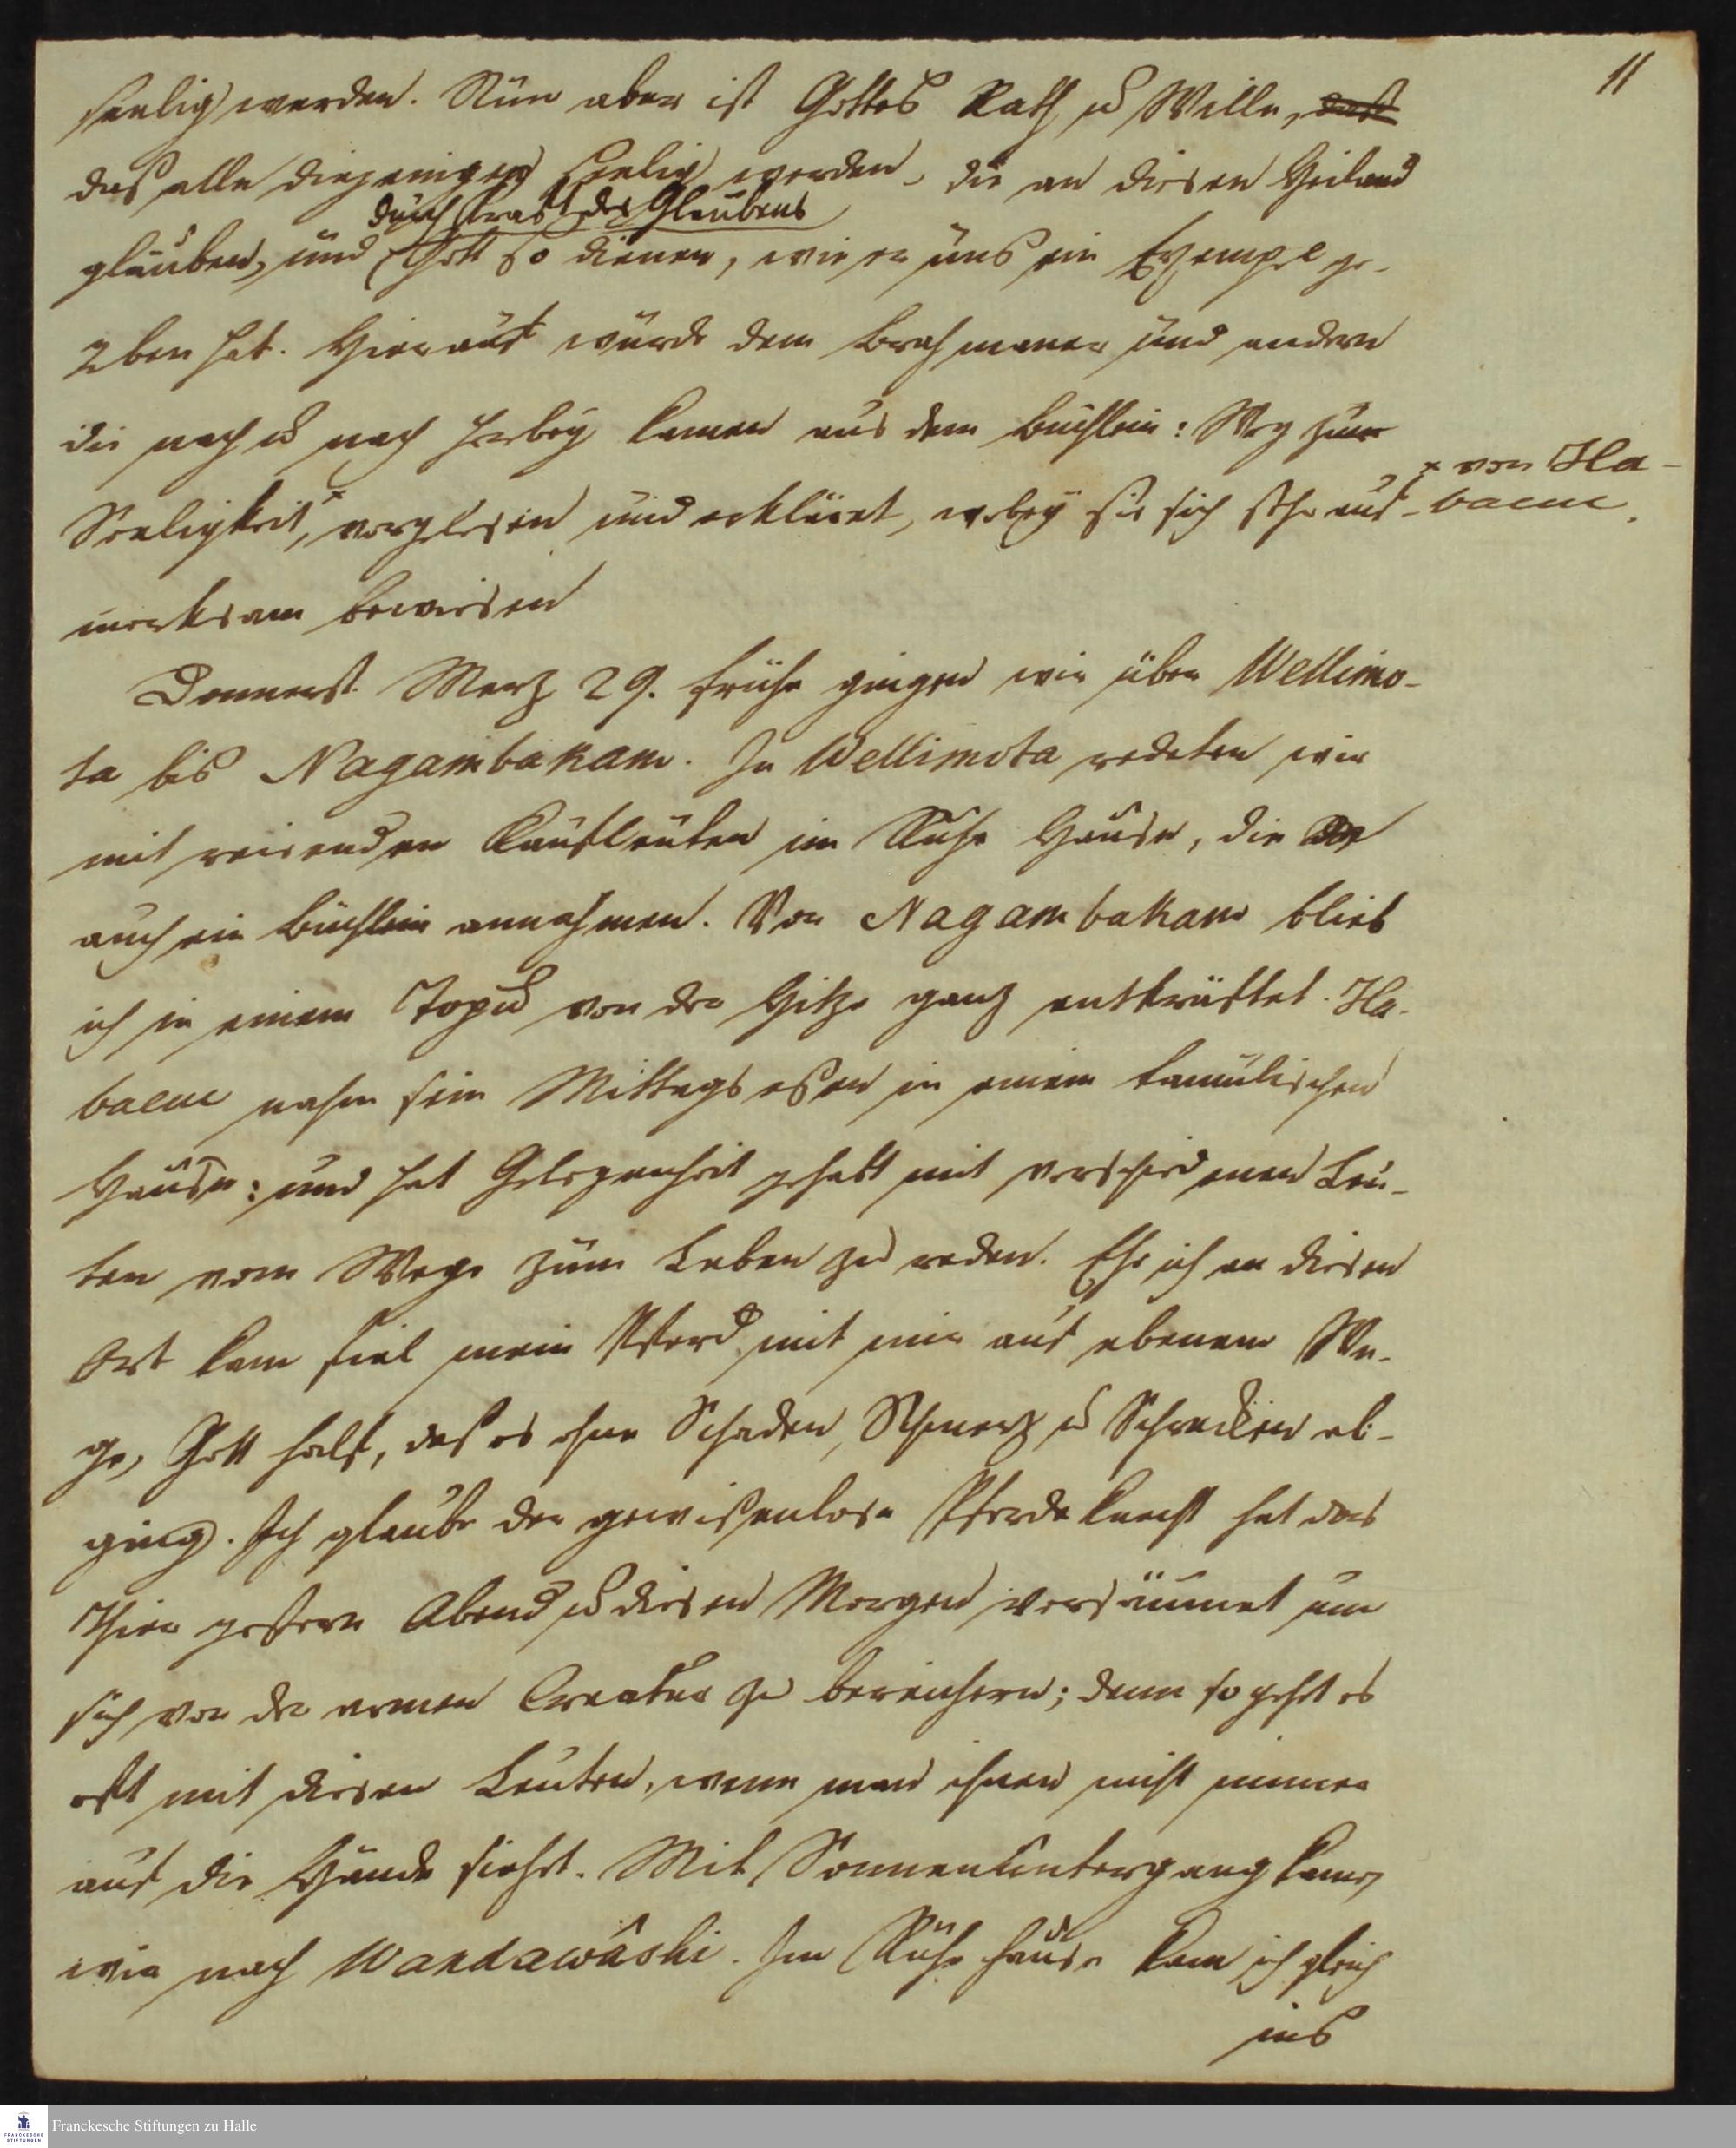 11
seelig werden. Nün aber ist Gottes Rath u Wille, daß
das alle diejenigen seelig werden, die an diesen Heiland
durch Kraft des Glaubens
glauben, und Gott so dienen, wie er uns ein Exempel ge-
geben hat. Hierauf wurde dem Brahmaner und andern
die nach u nach herbey kamen aus dem Büchlein: Weg zur
Seeligkeit,+ vorgelesen und erkläret, wobey sie sich sehr auf-
+ von Ha-
baene.
merksam bewiesen
Donnerst. Merz 29. frühe gingen wir über Wellimo-
ta bis Nagambakam. In Wellimota redeten wir
mit reisenden Kaufleuten im Ruhe Hause, die
auch ein Büchlein annahmen. Vor Nagambakam blieb
ich in einem Topu von der Hitze ganz entkräftet. Ha-
baene nahm sein Mittagsessen in einem tamulischen
Hause: und hat Gelegenheit gehabt mit verschiedenen Leu-
ten vom Wege zum Leben zu reden. Ehe ich an diesen
Ort kam fiel mein Pferd mit mir auf ebenem We-
ge, Gott half, daß es ohne Schaden, Schmerz u Schrecken ab-
ging. Ich glaube der gewißenlose Pferdeknecht hat das
Thier gestern Abend u diesen Morgen versäumet um
sich von der armen Creatur zu bereichern; denn so geht es
oft mit diesen Leuten, wenn man ihnen nicht immer
auf die Hände siehet. Mit Sonnenuntergang kamen
wir nach Wandawâshi. Im Ruhehause kam ich gleich
ins
Franckesche Stiftungen zu Halle